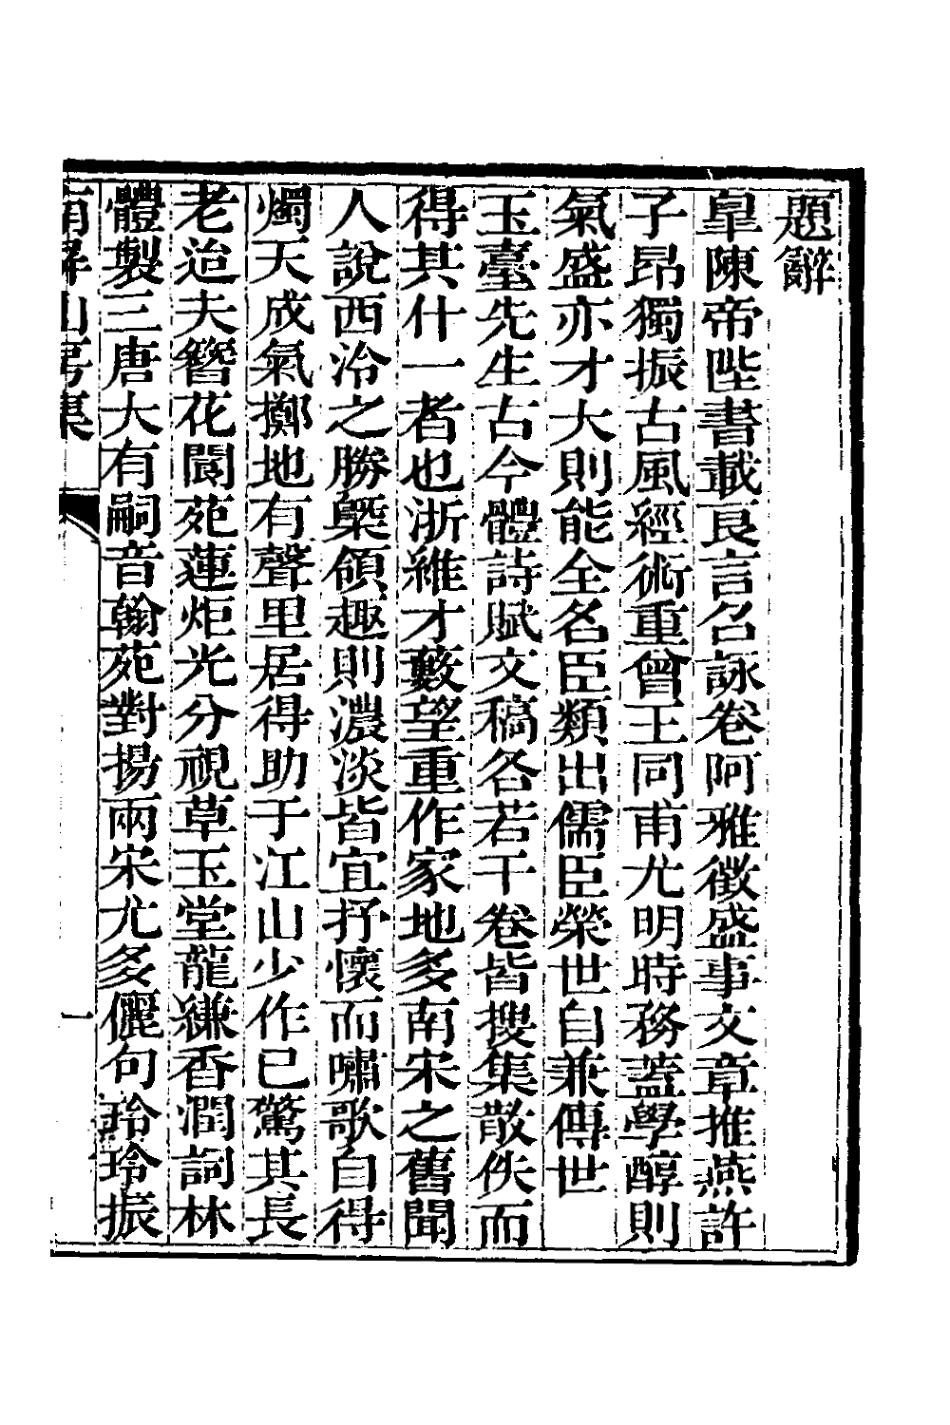 題辭
臯陳帝陛書載艮言召詠卷阿雅徵盛事文章推燕許
子昂獨振古風經術重曾王同甫尤明時務蓋學醇則
氣盛亦才大則能全名臣類出儒臣榮世自兼傳世
玉臺先生古今體詩賦文稿各若干卷皆搜集散佚而
得其什一者也浙維才藪望重作家地多南宋之舊聞
人說西泠之勝槩領趣則濃淡皆宜抒懷而嘯歌自得
燭天成氣擲地有聲里居得助于江山少作已驚其長
老迨夫簪花閬苑蓮炬光分視草玉堂龍縑香潤詞林
體製三唐大有嗣音翰苑對揚兩宋尤多儷句玲玲振
南屏山房集
一